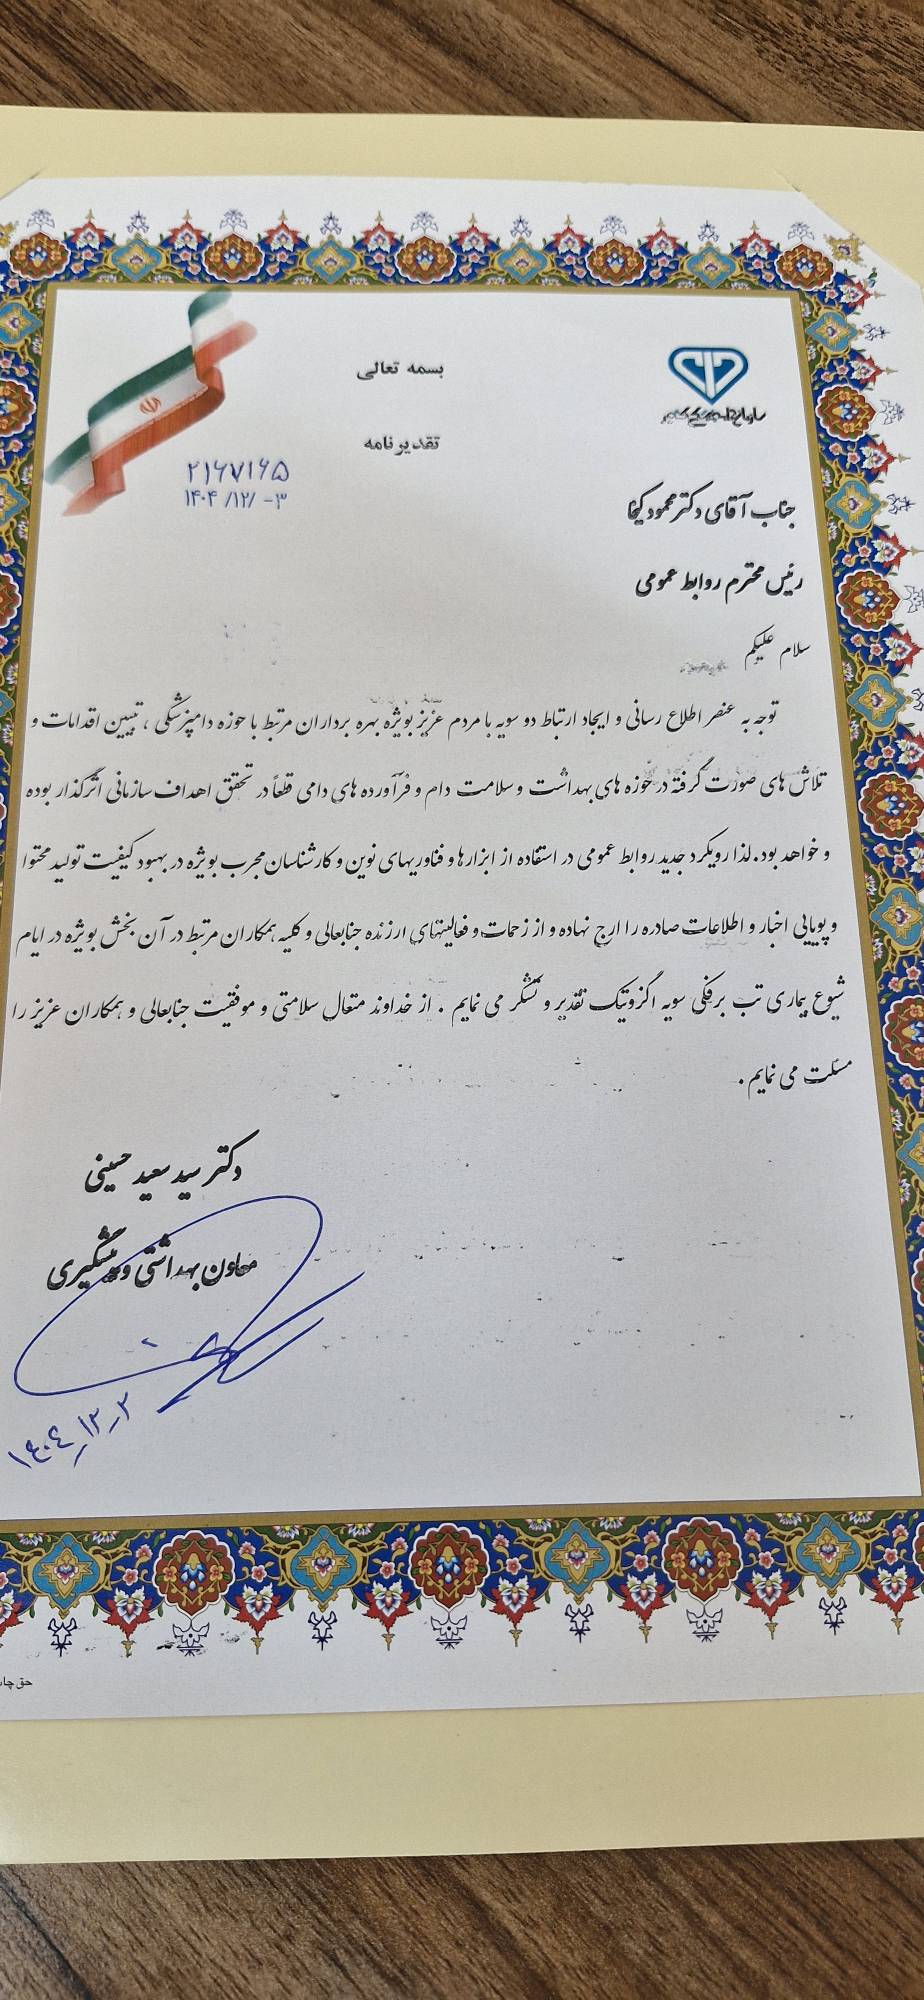 بسمه تعالی
سازمان دامپزشکی کشور
تقدیرنامه
۲۱۶۷۱۶۵
۱۴۰۴/۱۲/۰۳
جناب آقای دکتر محمود کیخا
رئیس محترم روابط عمومی
سلام علیکم
توجه به عنصر اطلاع رسانی و ایجاد ارتباط دو سویه با مردم عزیز بویژه بهره برداران مرتبط با حوزه دامپزشکی ، تبیین اقدامات و
تلاش های صورت گرفته در حوزه های بهداشت و سلامت دام و فرآورده های دامی قطعاً در تحقق اهداف سازمانی اثرگذار بوده
و خواهد بود. لذا رویکرد جدید روابط عمومی در استفاده از ابزارها و فناوریهای نوین و کارشناسان مجرب بویژه در بهبود کیفیت تولید محتوا
و پویایی اخبار و اطلاعات صادره را ارج نهاده و از زحمات و فعالیتهای ارزنده جنابعالی و کلیه همکاران مرتبط در آن بخش بویژه در ایام
شیوع بیماری تب برفکی سویه اگزوتیک تقدیر و تشکر می نمایم . از خداوند متعال سلامتی و موفقیت جنابعالی و همکاران عزیز را
مسئلت می نمایم .
دکتر سید سعید حسینی
معاون بهداشتی و پیشگیری
۱۴۰۴_۱۲_۲
حق چاپ